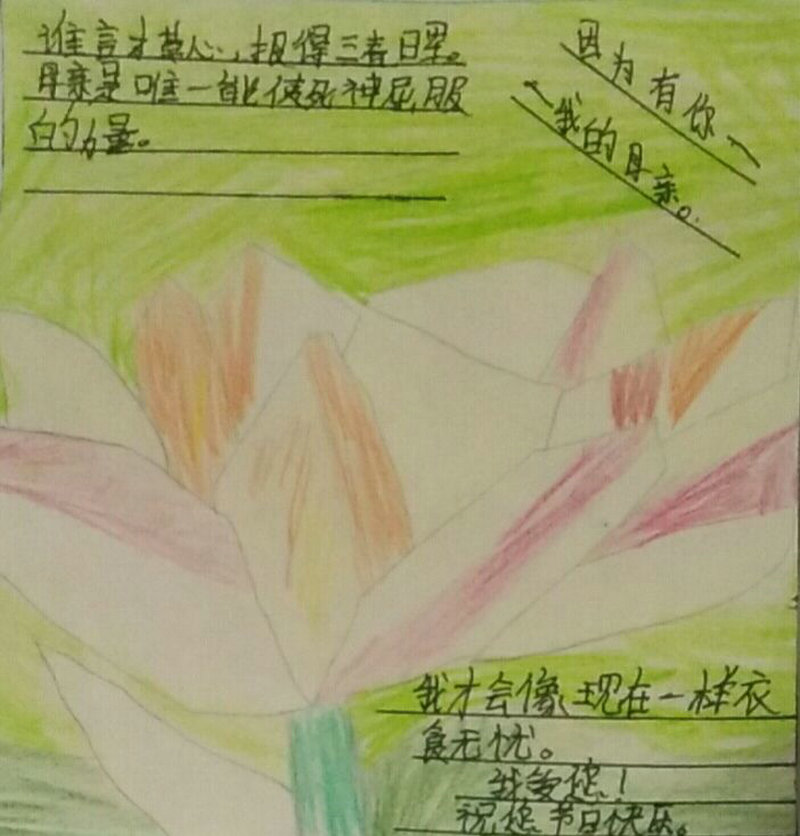 谁言寸草心，报得三春日翠。
母亲是唯一能使死神屈服
的力量。
因为有你
我的母亲。
我才会像现在一样衣
食无忧。
我爱您！
祝您节日快乐。